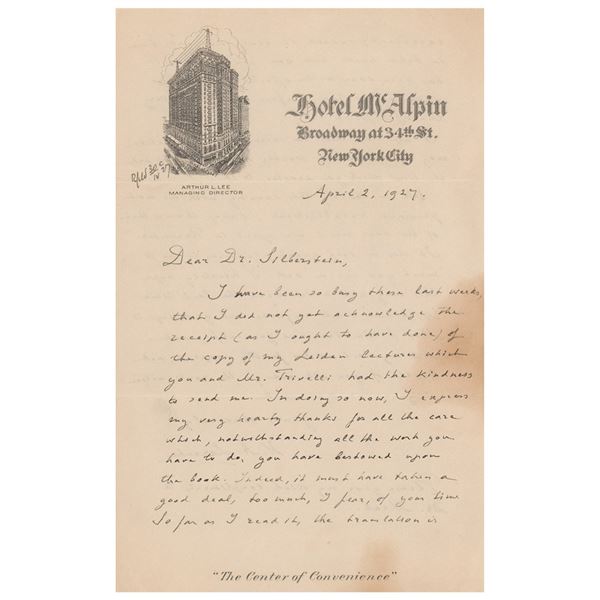 Hotel McAlpin
Broadway at 34th St.
New York City
ARTHUR L. LEE
MANAGING DIRECTOR
April 2, 1927.
Dear Dr. Silberstein,
I have been so busy these last weeks,
that I did not yet acknowledge the
receipt (as I ought to have done) of
the copy of my Leiden lectures which
you and Mr. Trivelli had the kindness
to send me. In doing so now, I express
my very hearty thanks for all the care
which, notwithstanding all the work you
have to do, you have bestowed upon
the book. Indeed, it must have taken a
good deal, too much, I fear, of your time
So far as I read it, the translation is
"The Center of Convenience"